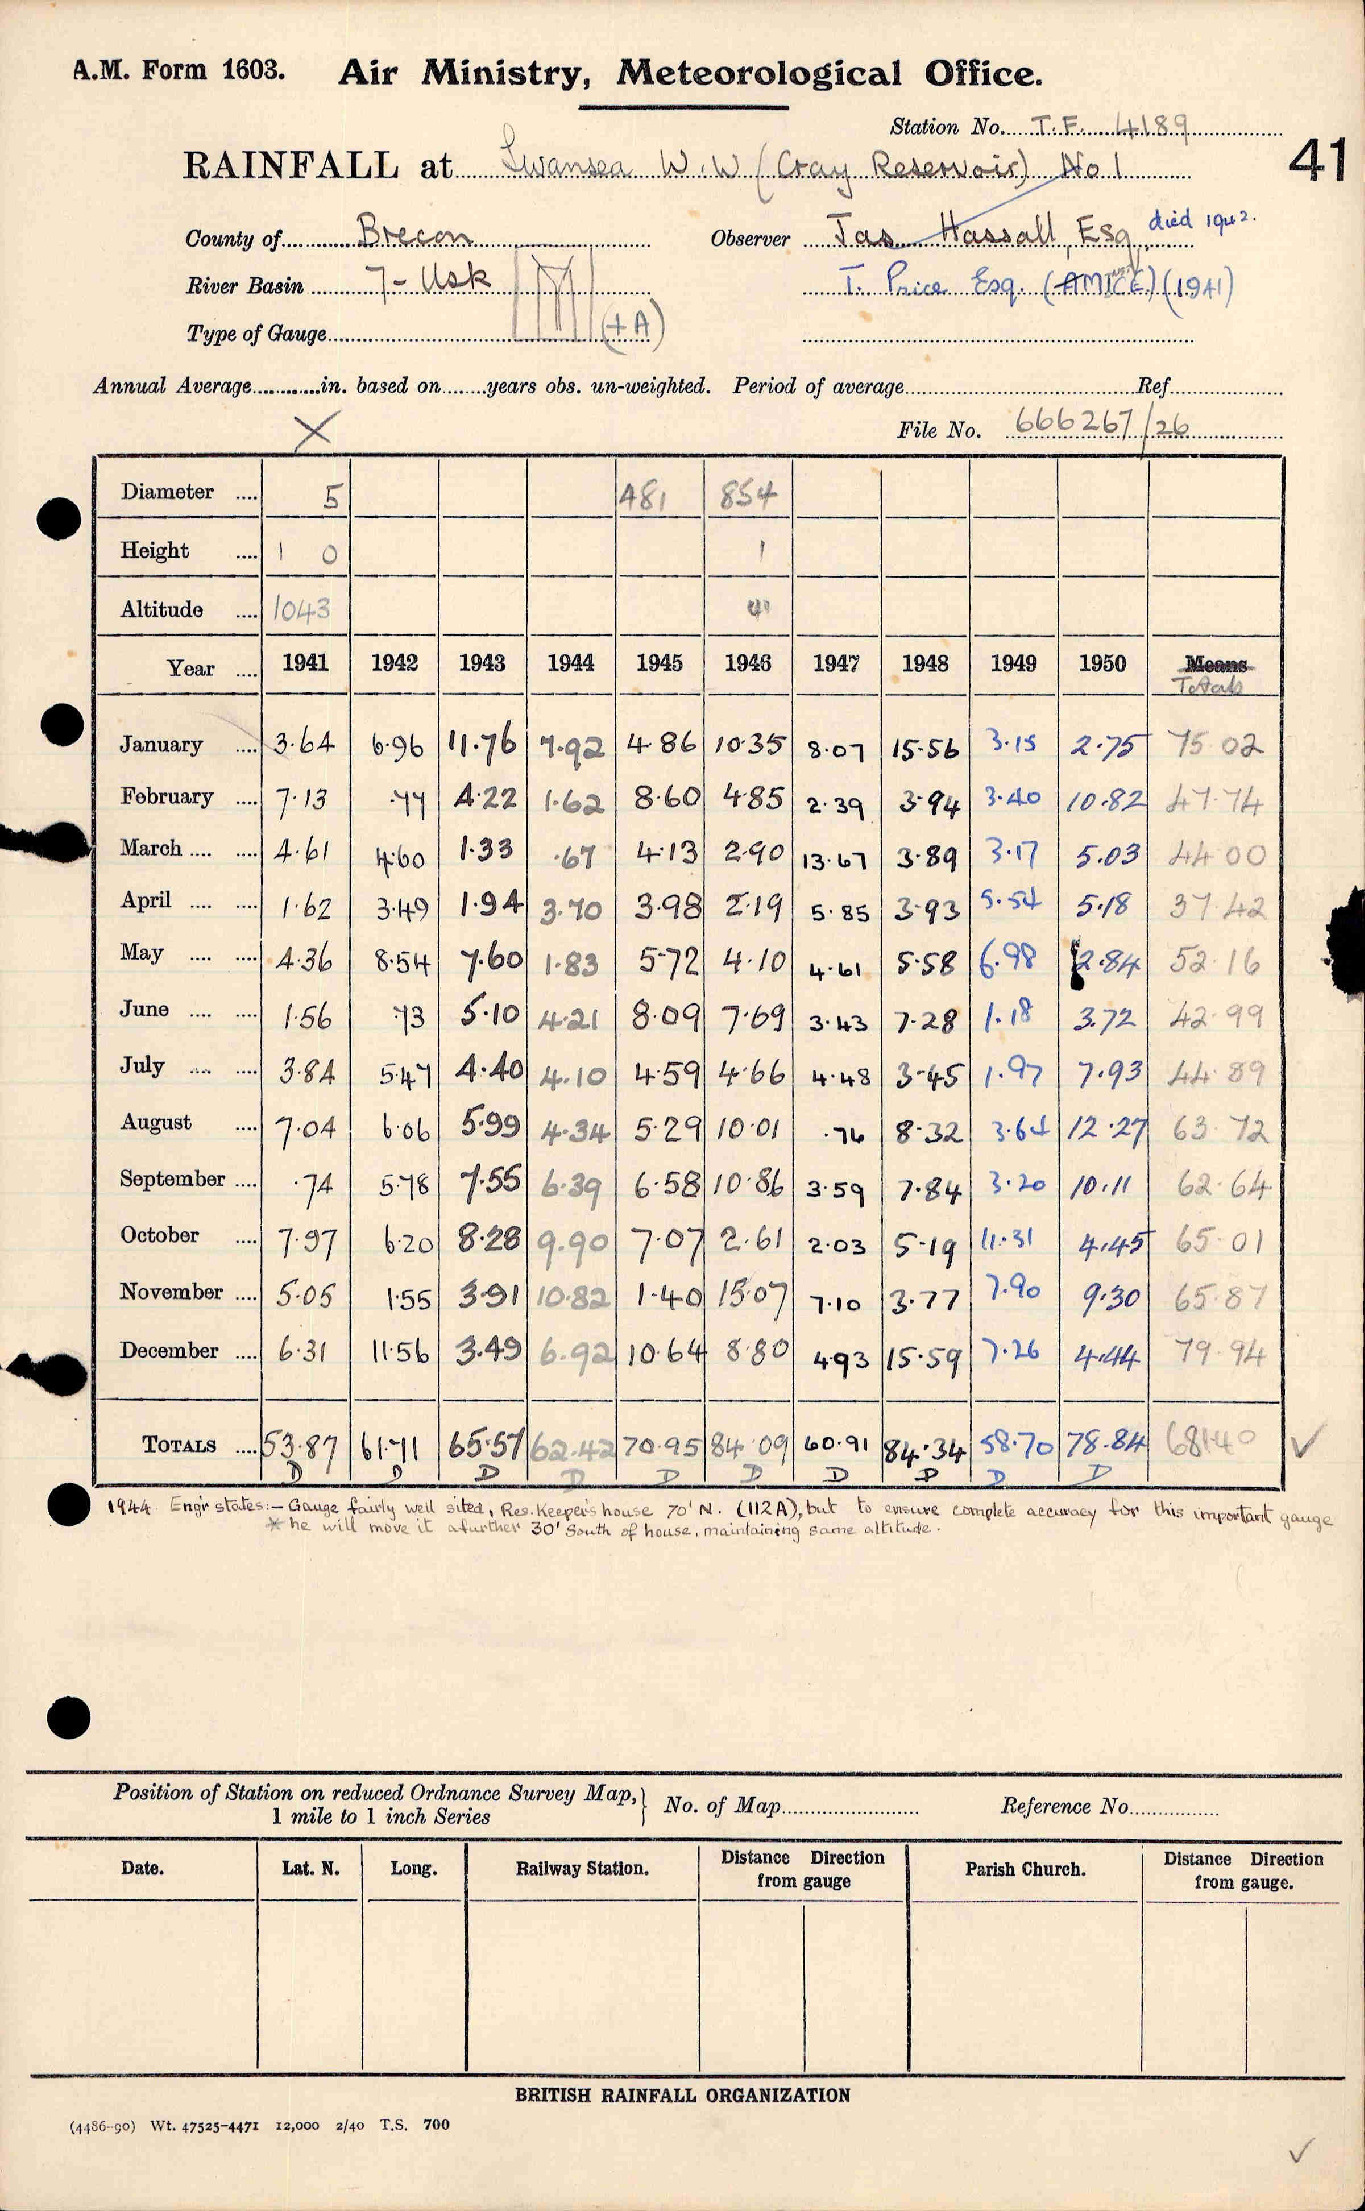 A.M. Form 1603. Air Ministry, Meteorological Office.
Station No. T.F. 4189
41
RAINFALL at Swansea W.W (Cray Reservoir) No 1
County of Brecon Observer Jas Hassall, Esq died 1942.
River Basin 7 - Usk T. Price Esq. (AMICE) (1941)
Type of Gauge (+A)
Annual Average in. based on years obs. un-weighted. Period of average Ref
X File No. 666267/26
Diameter .... 5 481 854
Height .... 1 0 1
Altitude .... 1043
Year .... 1941 1942 1943 1944 1945 1946 1947 1948 1949 1950 Means
Totals
January .... 3.64 6.96 11.76 7.92 4.86 10.35 8.07 15.56 3.15 2.75 75.02
February .... 7.13 .77 4.22 1.62 8.60 4.85 2.39 3.94 3.40 10.82 47.74
March .... .... 4.61 4.60 1.33 .67 4.13 2.90 13.67 3.89 3.17 5.03 44.00
April .... .... 1.62 3.49 1.94 3.70 3.98 2.19 5.85 3.93 5.54 5.18 37.42
May .... .... 4.36 8.54 7.60 1.83 5.72 4.10 4.61 5.58 6.98 2.84 52.16
June .... .... 1.56 .73 5.10 4.21 8.09 7.69 3.43 7.28 1.18 3.72 42.99
July .... .... 3.84 5.47 4.40 4.10 4.59 4.66 4.48 3.45 1.97 7.93 44.89
August .... 7.04 6.06 5.99 4.34 5.29 10.01 .76 8.32 3.64 12.27 63.72
September .... .74 5.78 7.55 6.39 6.58 10.86 3.59 7.84 3.20 10.11 62.64
October .... 7.97 6.20 8.28 9.90 7.07 2.61 2.03 5.19 11.31 4.45 65.01
November .... 5.05 1.55 3.91 10.82 1.40 15.07 7.10 3.77 7.90 9.30 65.87
December .... 6.31 11.56 3.49 6.92 10.64 8.80 4.93 15.59 7.26 4.44 79.94
TOTALS .... 53.87 61.71 65.57 62.42 70.95 84.09 60.91 84.34 58.70 78.84 681.40 ✓
D D D D D D D D D D
1944 Eng'r states:- Gauge fairly well sited, Res. Keeper's house 70' N. (112A), but to ensure complete accuracy for this important gauge
* he will move it a further 30' South of house, maintaining same altitude.
Position of Station on reduced Ordnance Survey Map, } No. of Map Reference No.
1 mile to 1 inch Series
Date. Lat. N. Long. Railway Station. Distance Direction from gauge Parish Church. Distance Direction from gauge.
BRITISH RAINFALL ORGANIZATION
(4486-90) Wt. 47525-4471 12,000 2/40 T.S. 700
✓